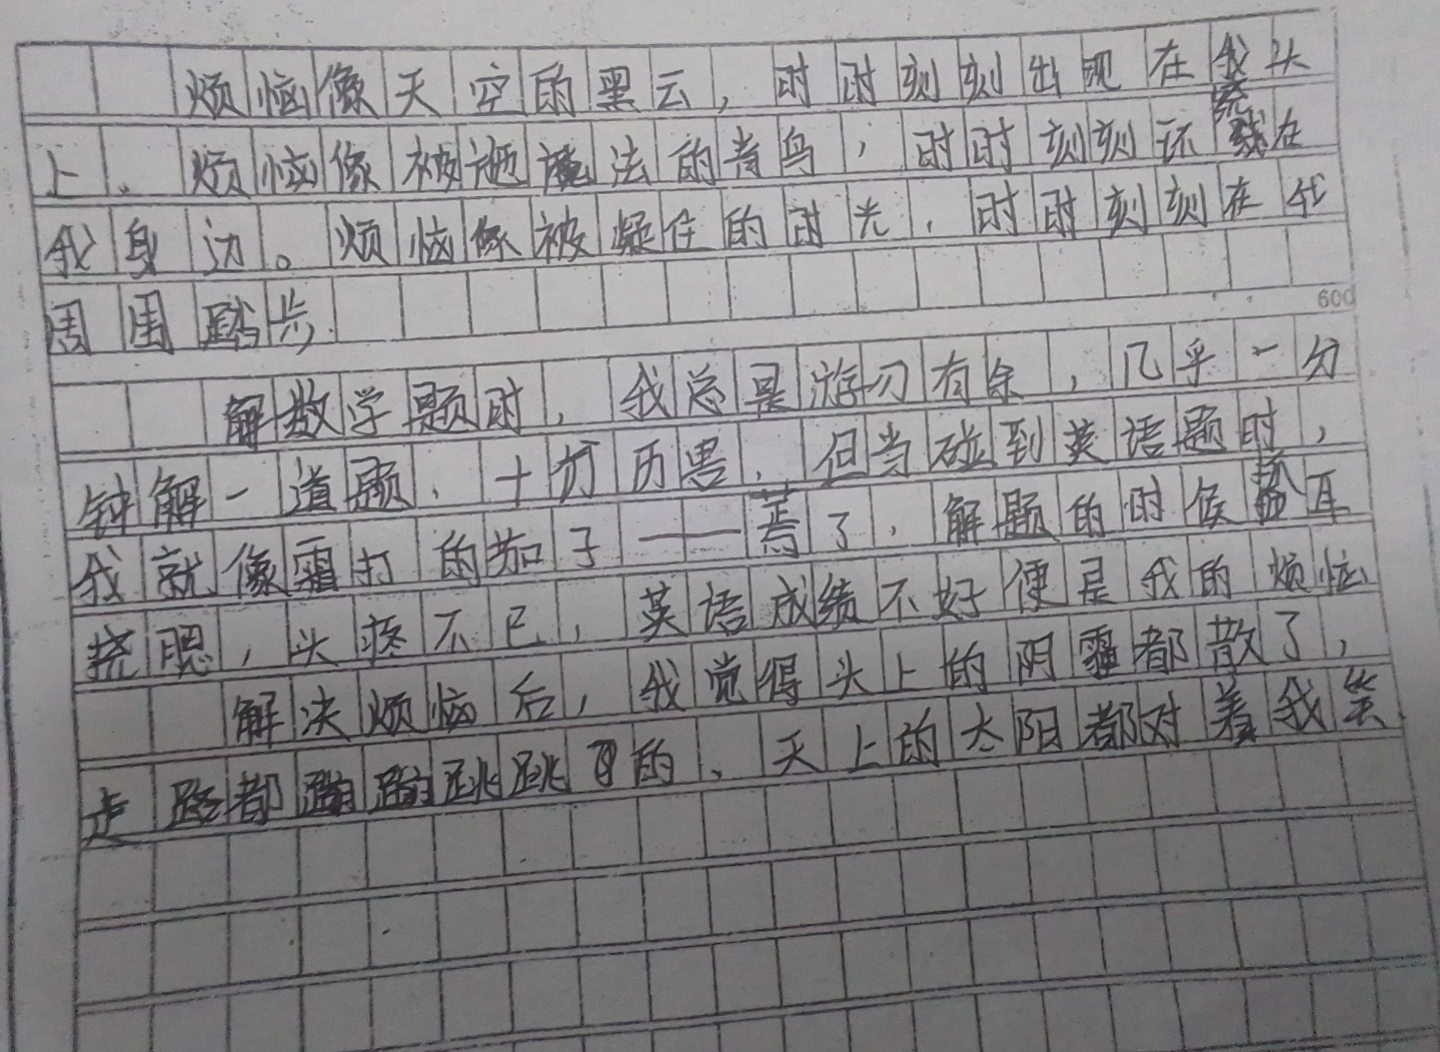 烦恼像天空的黑云，时时刻刻出现在我头
上。烦恼像被施魔法的青鸟，时时刻刻环绕在
我身边。烦恼像被凝住的时光，时时刻刻在我
周围踏步
600
解数学题时，我总是游刃有余，几乎一分
钟解一道题，十分历害，但当碰到英语题时，
我就像霜打的茄子——蔫了，解题的时候抓耳
挠腮，头疼不已，英语成绩不好便是我的烦恼
解决烦恼后，我觉得头上的阴霾都散了，
走路都蹦蹦跳跳的、天上的太阳都对着我笑